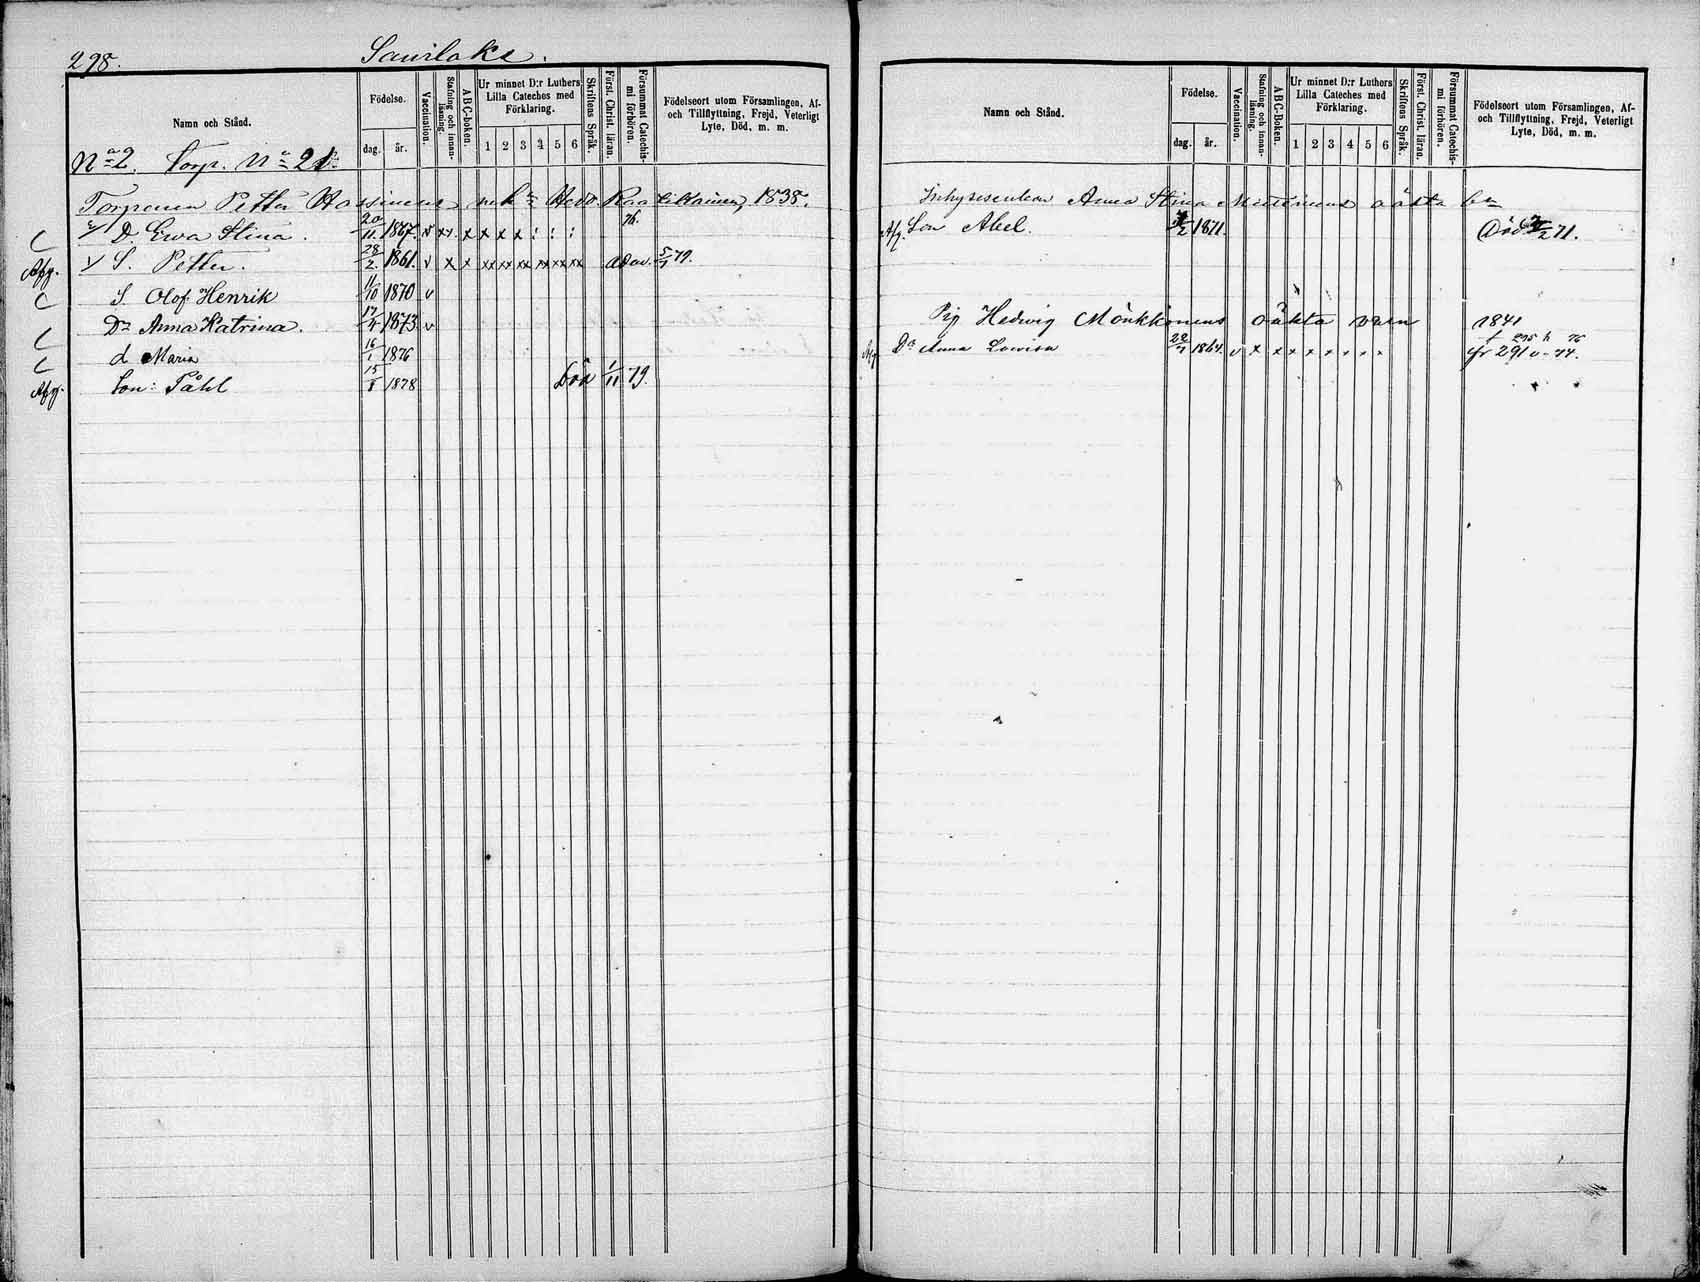 298. Sawilaks.
Namn och Stånd.
Födelse.
dag. år.
Vaccination.
Stafning och innanläsning.
ABC-boken.
Ur minnet D:r Luthers Lilla Cateches med Förklaring.
1 2 3 4 5 6
Skriftens Språk.
Först. Christ. läran.
Försummat Catechismi förhören.
Födelseort utom Församlingen, Af- och Tillflyttning, Frejd, Veterligt Lyte, Död, m. m.
No 2. Torp. No 21.
Torparen Petter Hassinens
Hedv. 1838.
C D. Ewa Stina. 20/11 1867. v xx. x x x x : : : 76.
Afg. S. Petter. 28/2 1861. v x x xx xx xx xx xx xx 5/7 79.
C S. Olof Henrik 11/10 1870 v
C Dr Anna Katrina. 17/4 1873. v
C d Maria 16/1 1876
Afg. Son: Påhl 15/8 1878 Död 1/11 79.
Namn och Stånd.
Födelse.
dag. år.
Vaccination.
Stafning och innanläsning.
ABC-boken.
Ur minnet D:r Luthers Lilla Cateches med Förklaring.
1 2 3 4 5 6
Skriftens Språk.
Först. Christ. läran.
Försummat Catechismi förhören.
Födelseort utom Församlingen, Af- och Tillflyttning, Frejd, Veterligt Lyte, Död, m. m.
Inhyseenkan Anna Stina oäkta bn
Afg. Son Abel. 1871. Död 71.
Pig Hedwig Mönkkönens oäkta barn 1841
Afg Dr Anna Lowisa 22/7 1864. v x x x x x x x x fr 291 v. 74.